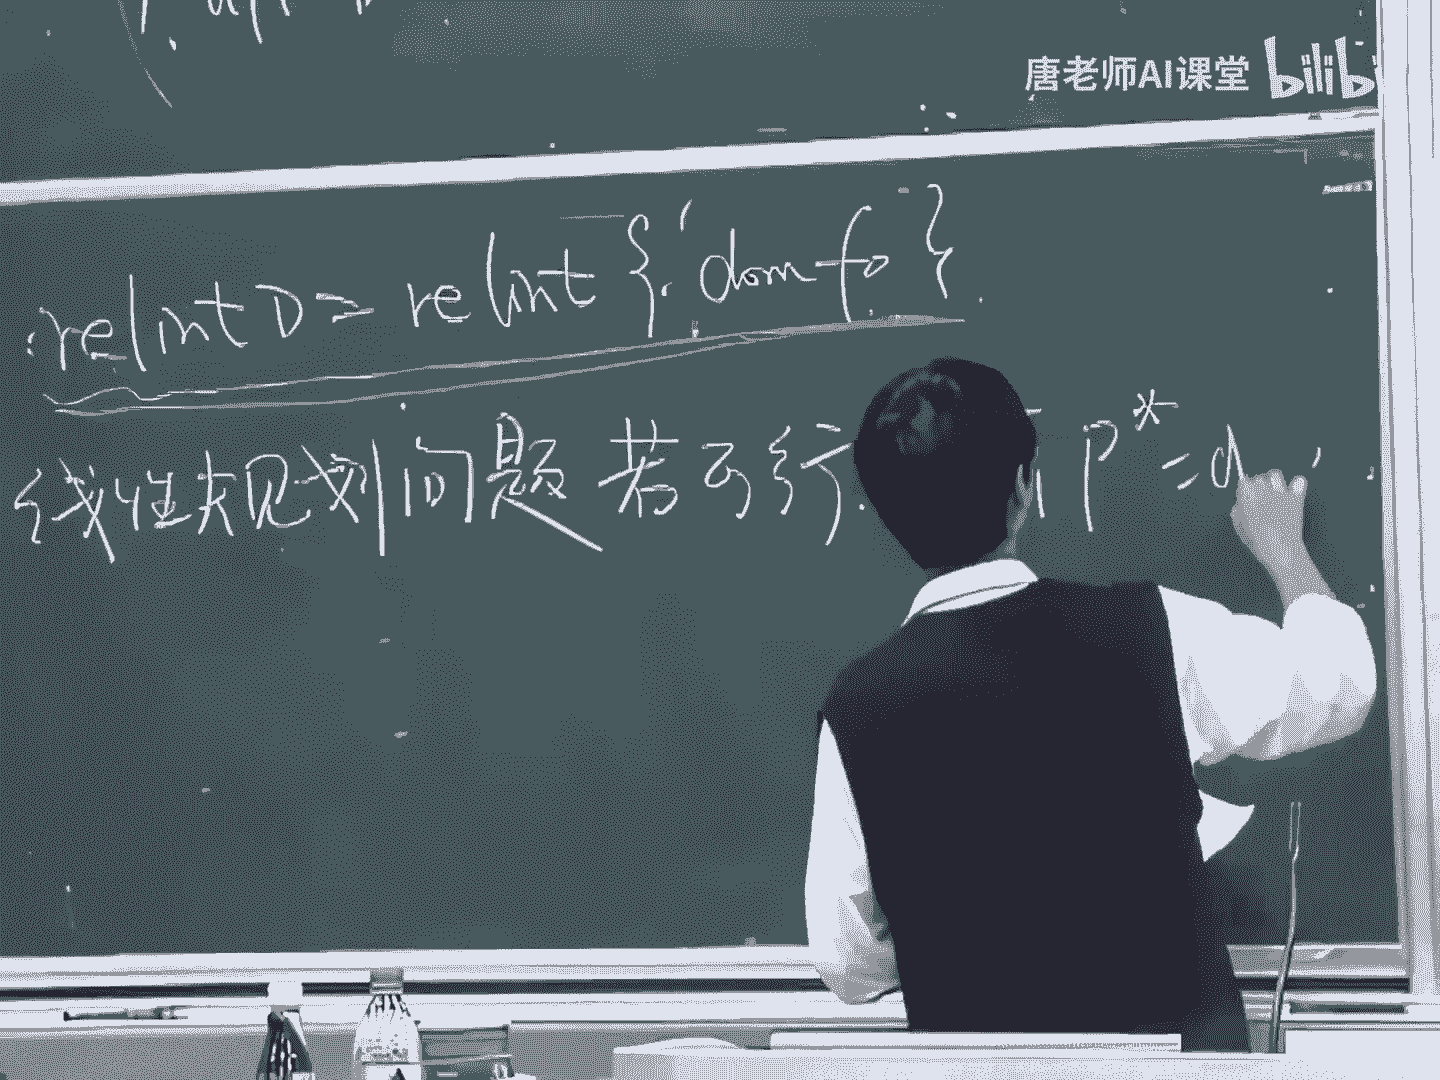 唐老师AI课堂 bilibi
relint D = relint { dom f₀ }
线性规划问题 若可行 P* = d